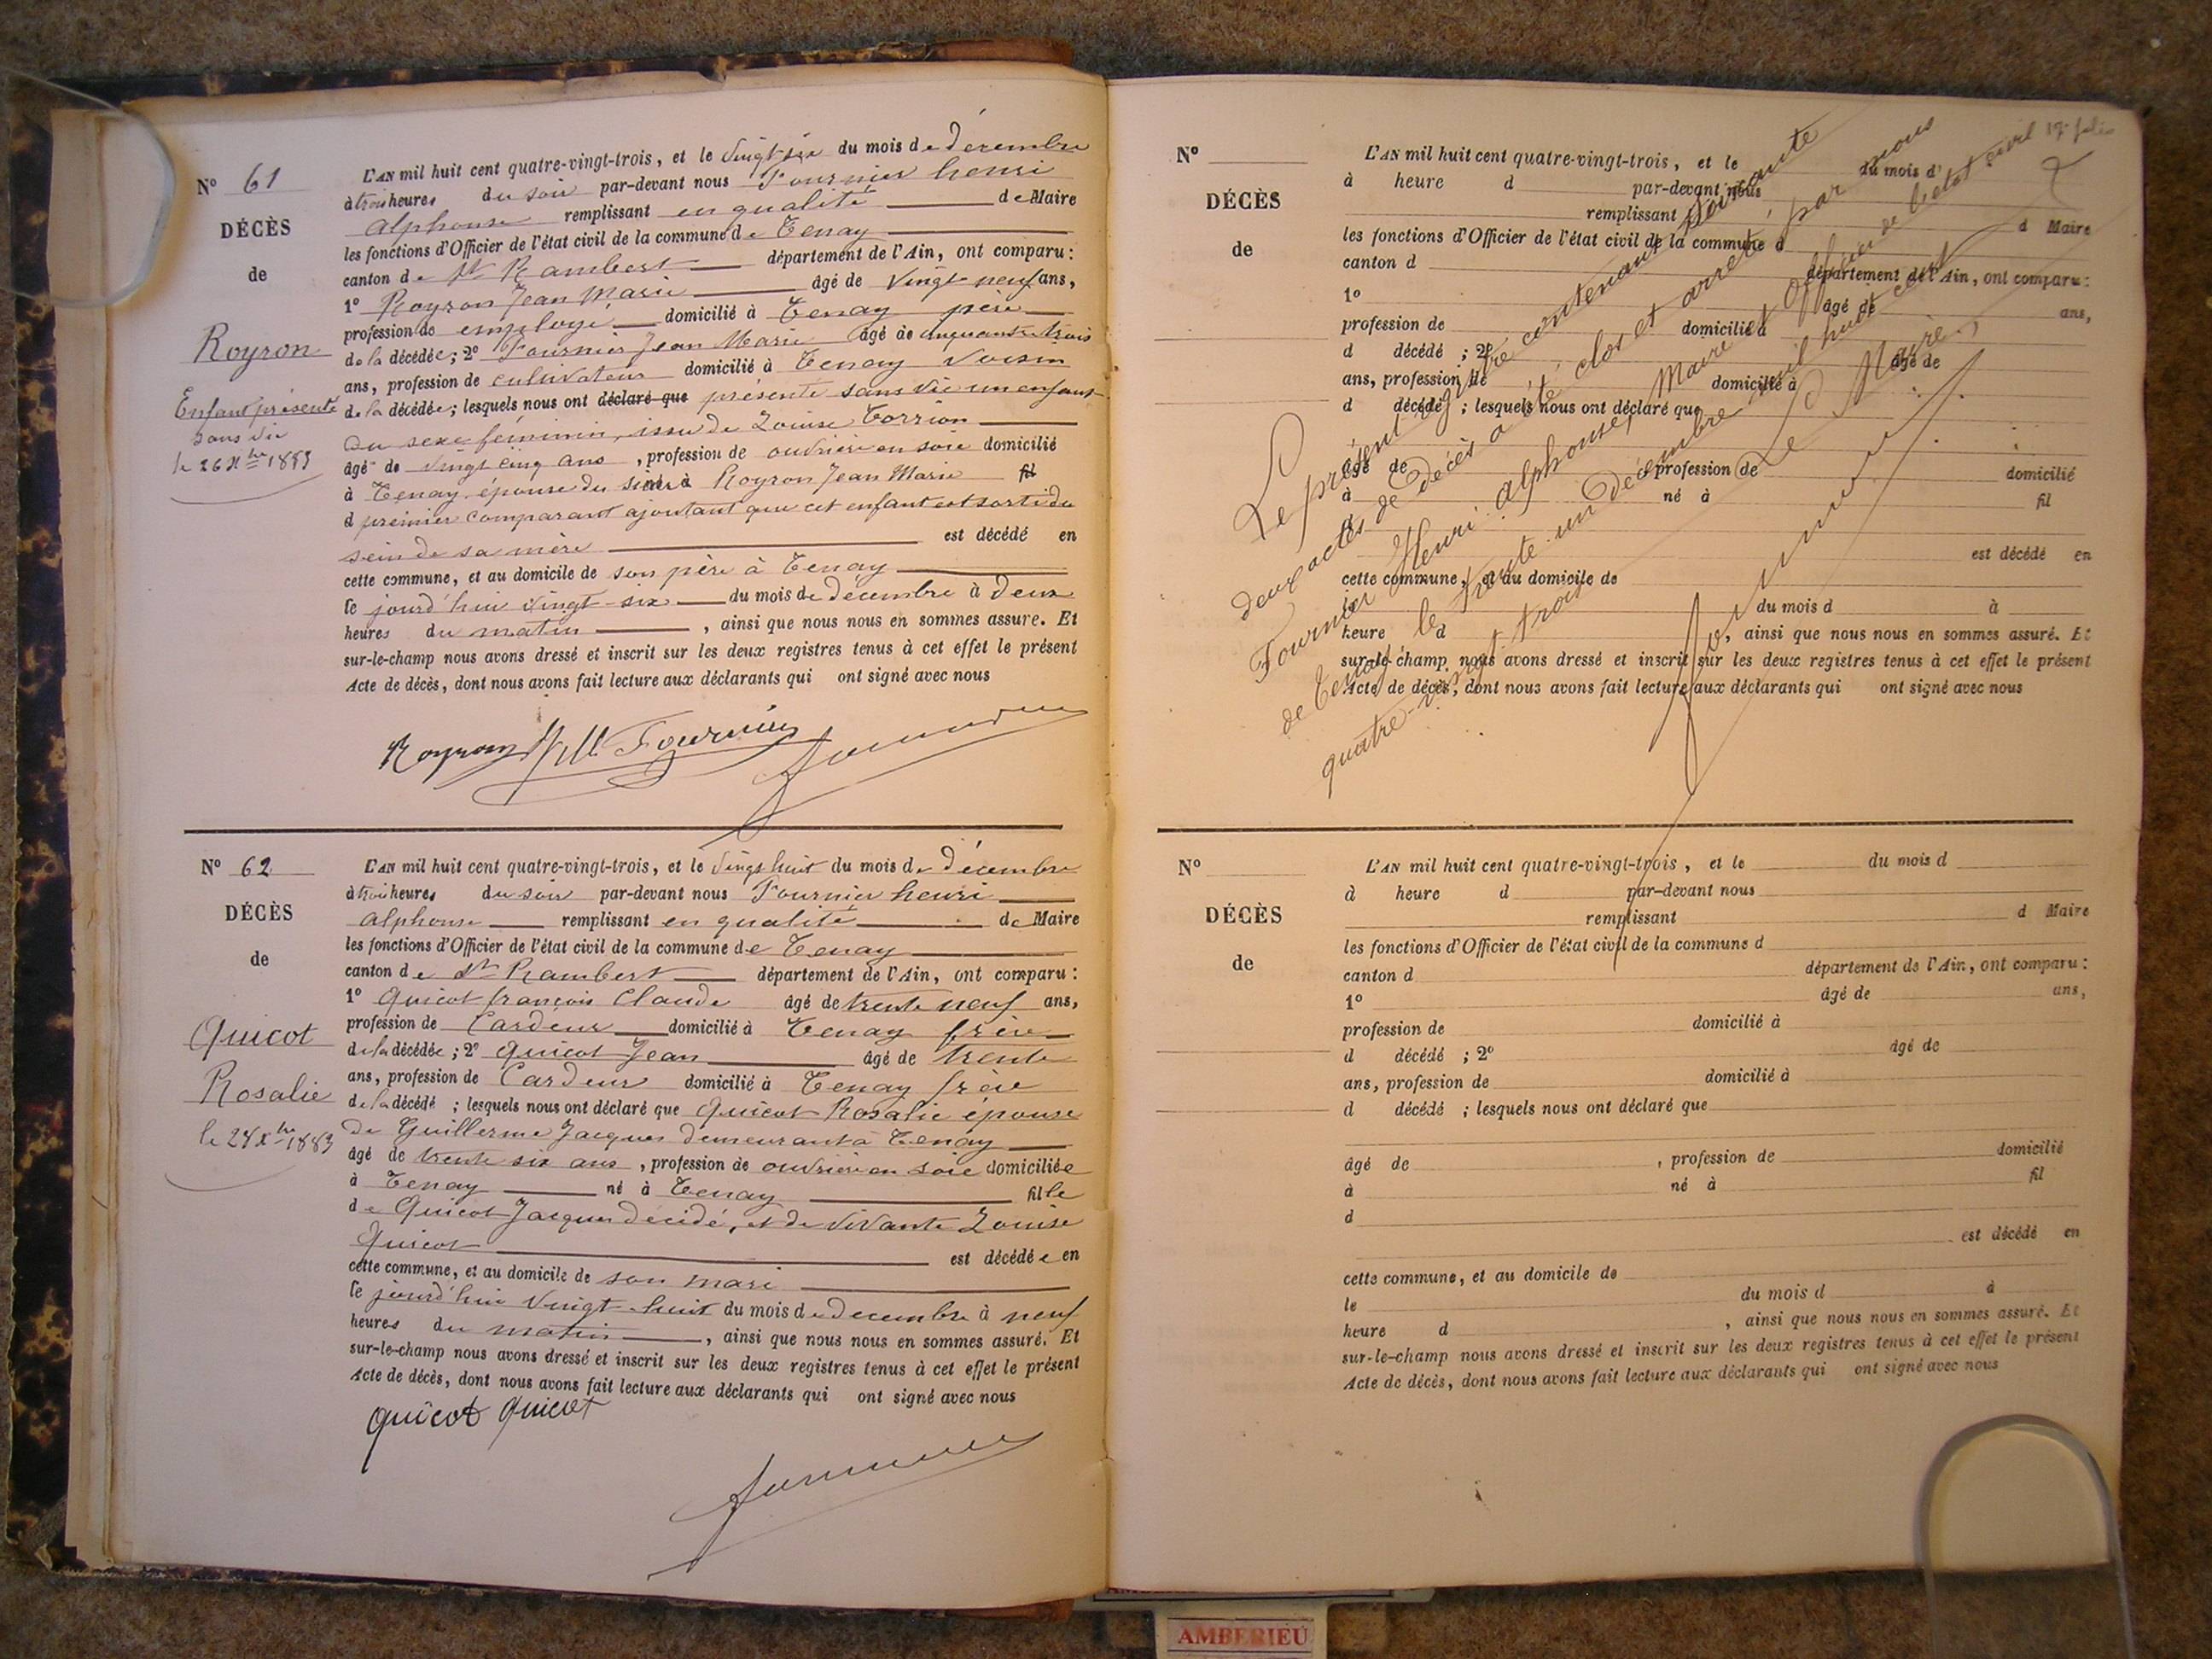 N° 61
DÉCÈS
de
Royron
Enfant présenté
sans vie
le 26 Xbre 1883
L'AN mil huit cent quatre-vingt-trois, et le vingt six du mois de décembre
à trois heures du soir par-devant nous Fournier henri
alphonse remplissant en qualité de Maire
les fonctions d'Officier de l'état civil de la commune de Tenay
canton de St Rambert département de l'Ain, ont comparu :
1° Royron Jean Marie âgé de vingt neuf ans,
profession de employé domicilié à Tenay père
de la décédée ; 2° Fournier Jean Marie âgé de cinquante trois
ans, profession de cultivateur domicilié à Tenay voisin
de la décédée ; lesquels nous ont déclaré que présenté sans vie un enfant
du sexe féminin, issu de Louise Torrion
âgé de vingt cinq ans, profession de ouvrière en soie domicilié
à Tenay épouse du Royron Jean Marie fil
d premier comparant ajoutant que cet enfant est sorti du
sein de sa mère est décédé en
cette commune, et au domicile de son père à Tenay
le jourd'hui vingt-six du mois de décembre à deux
heures du matin, ainsi que nous nous en sommes assuré. Et
sur-le-champ nous avons dressé et inscrit sur les deux registres tenus à cet effet le présent
Acte de décès, dont nous avons fait lecture aux déclarants qui ont signé avec nous
Royron JM Fournier
Fournier
N° 62
DÉCÈS
de
Quicot
Rosalie
le 28 Xbre 1883
L'AN mil huit cent quatre-vingt-trois, et le vingt huit du mois de décembre
à trois heures du soir par-devant nous Fournier henri
alphonse remplissant en qualité de Maire
les fonctions d'Officier de l'état civil de la commune de Tenay
canton de St Rambert département de l'Ain, ont comparu :
1° Quicot françois Claude âgé de trente neuf ans,
profession de Cardeur domicilié à Tenay frère
de la décédée ; 2° Quicot Jean âgé de trente
ans, profession de Cardeur domicilié à Tenay frère
de la décédé ; lesquels nous ont déclaré que Quicot Rosalie épouse
de Guillerme Jacques demeurant à Tenay
âgé de trente six ans, profession de ouvrière en soie domiciliée
à Tenay né à Tenay fille
de Quicot Jacques décédé, et de vivante Louise
Quicot est décédée en
cette commune, et au domicile de son mari
le jourd'hui vingt-huit du mois de decembre à neuf
heures du matin, ainsi que nous nous en sommes assuré. Et
sur-le-champ nous avons dressé et inscrit sur les deux registres tenus à cet effet le présent
Acte de décès, dont nous avons fait lecture aux déclarants qui ont signé avec nous
Quicot Quicot
Fournier
N°
DÉCÈS
de
L'AN mil huit cent quatre-vingt-trois, et le du mois d'
à heure d par-devant nous
remplissant d Maire
les fonctions d'Officier de l'état civil de la commune d
canton d département de l'Ain, ont comparu :
1° âgé de ans,
profession de domicilié à
d décédé ; 2° âgé de
ans, profession de domicilié à
d décédé ; lesquels nous ont déclaré que
âgé de , profession de domicilié
à né à fil
d
est décédé en
cette commune, et au domicile de
le du mois d à
heure d , ainsi que nous nous en sommes assuré. Et
sur-le-champ nous avons dressé et inscrit sur les deux registres tenus à cet effet le présent
Acte de décès, dont nous avons fait lecture aux déclarants qui ont signé avec nous
Le présent registre contenant soixante
deux actes de Décès a été clos et arrêté par nous
Fournier Henri Alphonse, Maire et Officier de l'état civil
de Tenay le trente un Décembre mil huit cent
quatre-vingt trois
Le Maire,
Fournier
N°
DÉCÈS
de
L'AN mil huit cent quatre-vingt-trois, et le du mois d
à heure d par-devant nous
remplissant d Maire
les fonctions d'Officier de l'état civil de la commune d
canton d département de l'Ain, ont comparu :
1° âgé de ans,
profession de domicilié à
d décédé ; 2° âgé de
ans, profession de domicilié à
d décédé ; lesquels nous ont déclaré que
âgé de , profession de domicilié
à né à fil
d
est décédé en
cette commune, et au domicile de
le du mois d à
heure d , ainsi que nous nous en sommes assuré. Et
sur-le-champ nous avons dressé et inscrit sur les deux registres tenus à cet effet le présent
Acte de décès, dont nous avons fait lecture aux déclarants qui ont signé avec nous
AMBERIEU